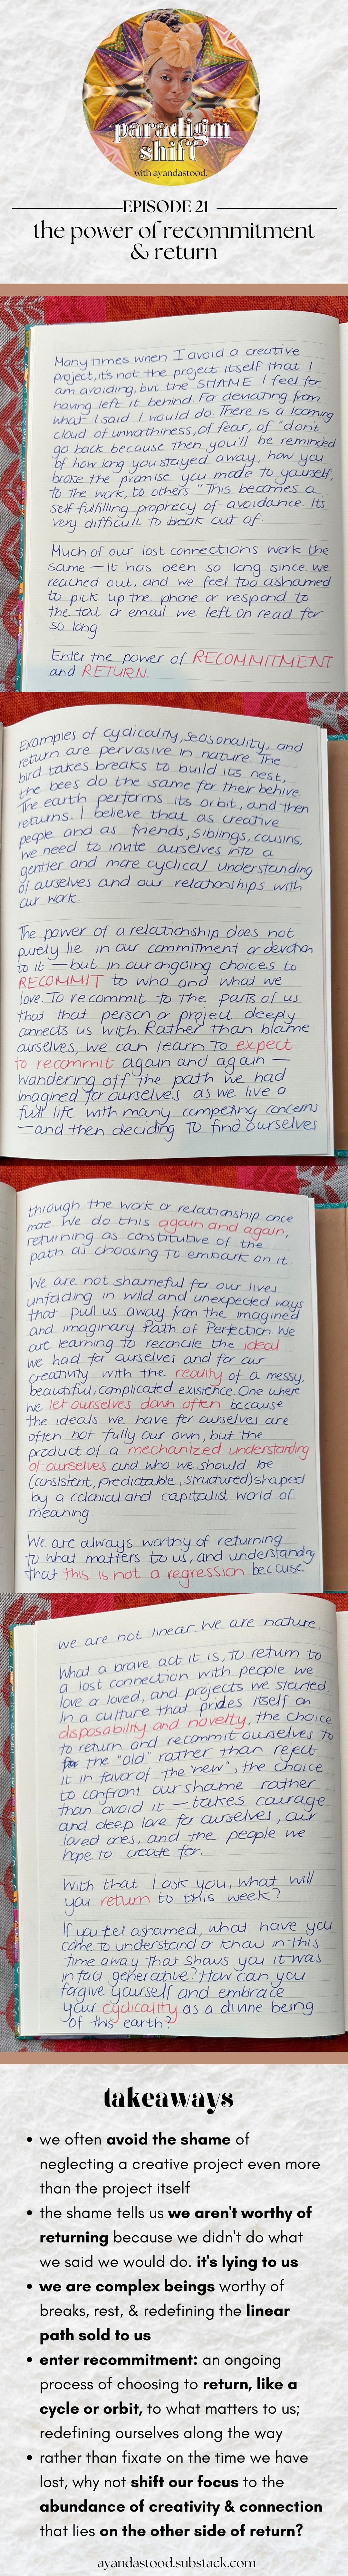 paradigm
shift
with ayandastood.
EPISODE 21
the power of recommitment
& return
Many times when I avoid a creative
project, it's not the project itself that I
am avoiding, but the SHAME I feel for
having left it behind. For deviating from
what I said I would do. There is a looming
cloud of unworthiness, of fear, of "dont
go back because then you'll be reminded
of how long you stayed away, how you
broke the promise you made to yourself,
to the work, to others." This becomes a
self-fulfilling prophecy of avoidance. Its
very difficult to beak out of.
Much of our lost connections work the
same — it has been so long since we
reached out, and we feel too ashamed
to pick up the phone or respond to
the text or email we left on read for
so long.
Enter the power of RECOMMITMENT
and RETURN.
Examples of cyclicality, seasonality, and
return are pervasive in nature. The
bird takes breaks to build its nest,
the bees do the same for their behive.
The earth performs its orbit, and then
returns. I believe that as creative
people and as friends, siblings, cousins,
we need to invite ourselves into a
gentler and more cyclical understanding
of ourselves and our relationships with
our work.
The power of a relationship does not
purely lie in our commitment or devotion
to it — but in our ongoing choices to
RECOMMIT to who and what we
love. To recommit to the parts of us
that that person or project deeply
connects us with. Rather than blame
ourselves, we can learn to expect
to recommit again and again —
wandering off the path we had
imagined for ourselves as we live a
full life with many competing concerns
— and then deciding to find ourselves
through the work or relationship once
more. We do this again and again,
returning as constitutive of the
path as choosing to embark on it.
We are not shameful for our lives
unfolding in wild and unexpected ways
that pull us away from the imagined
and imaginary Path of Perfection. We
are learning to reconcile the ideal
we had for ourselves and for our
creativity with the reality of a messy,
beautiful, complicated existence. One where
we let ourselves down often because
the ideals we have for ourselves are
often not fully our own, but the
product of a mechanized understanding
of ourselves and who we should be
(consistent, predictable, structured) shaped
by a colonial and capitalist world of
meaning.
We are always worthy of returning
to what matters to us, and understanding
that this is not a regression because
we are not linear. We are nature.
What a brave act it is, to return to
a lost connection with people we
love or loved, and projects we started.
In a culture that prides itself on
disposability and novelty, the choice
to return and recommit ourselves to
the "old" rather than reject
it in favor of the "new", the choice
to confront our shame rather
than avoid it — takes courage
and deep love for ourselves, our
loved ones, and the people we
hope to create for.
With that I ask you, what will
you return to this week?
If you feel ashamed, what have you
come to understand or know in this
time away that shows you it was
in fact generative? How can you
forgive yourself and embrace
your cyclicality as a divine being
of this earth?
takeaways
• we often avoid the shame of
neglecting a creative project even more
than the project itself
• the shame tells us we aren't worthy of
returning because we didn't do what
we said we would do. it's lying to us
• we are complex beings worthy of
breaks, rest, & redefining the linear
path sold to us
• enter recommitment: an ongoing
process of choosing to return, like a
cycle or orbit, to what matters to us;
redefining ourselves along the way
• rather than fixate on the time we have
lost, why not shift our focus to the
abundance of creativity & connection
that lies on the other side of return?
ayandastood.substack.com